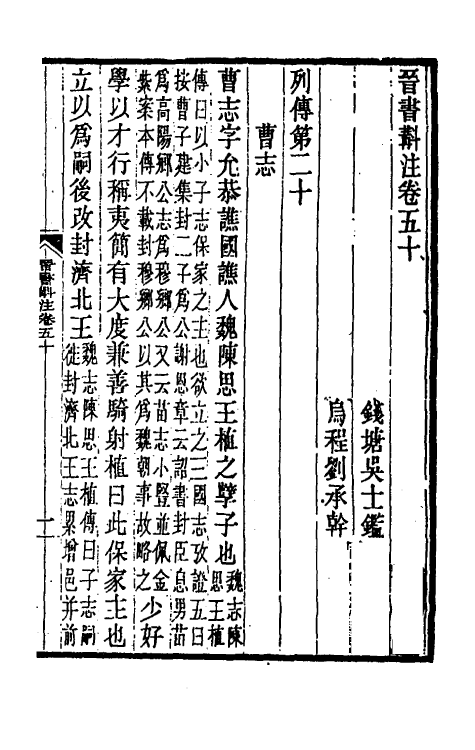 晉書斠注卷五十
錢塘吳士鑑
烏程劉承幹
列傳第二十
曹志
曹志字允恭譙國譙人魏陳思王植之孽子也魏志陳思王植
傳曰以小子志保家之主也欲立之三國志攷證五曰
按曹子建集封二子為公謝恩章云詔書封臣息男苗
為高陽鄉公志為穆鄉公又云苗志小豎並佩金
紫案本傳不載封穆鄉公以其為魏朝事故略之少好
學以才行稱夷簡有大度兼善騎射植曰此保家主也
立以爲嗣後改封濟北王魏志陳思王植傳曰子志嗣
徙封濟北王志累增邑并前
晉書斠注卷五十
一